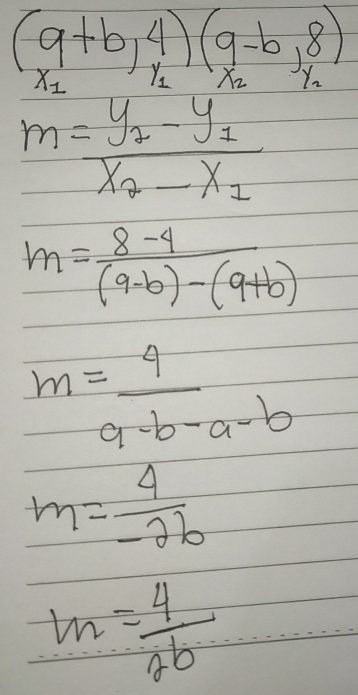 (a+b, 4) (a-b, 8)
x₁ y₁ x₂ y₂
m = y₂ - y₁
x₂ - x₁
m = 8 - 4
(a-b) - (a+b)
m = 4
a - b - a - b
m = 4
-2b
m = 4
2b